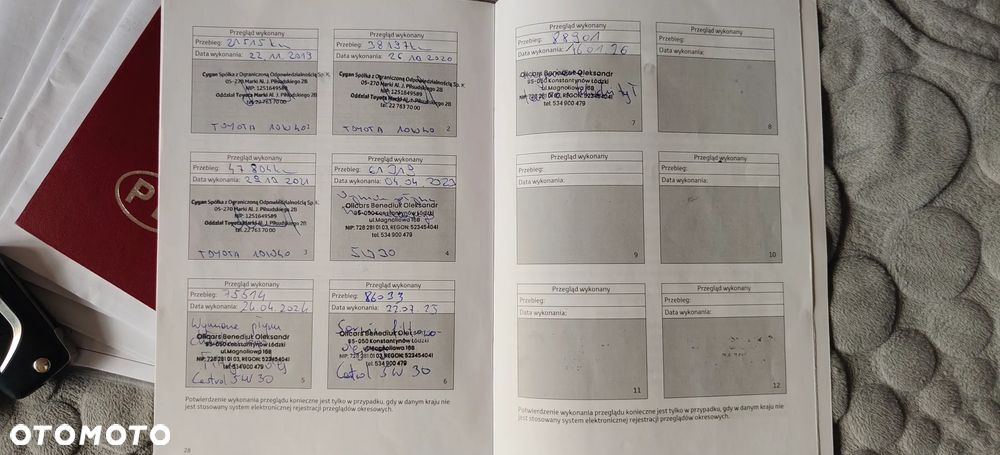 Przegląd wykonany
Przebieg: 21515 km
Data wykonania: 22 11 2019
Cygan Spółka z Ograniczoną Odpowiedzialnością Sp. K.
05-270 Marki Al. J. Piłsudskiego 2B
NIP: 1251649589
Oddział Toyota Marki Al. J. Piłsudskiego 2B
tel. 22 763 70 00
TOYOTA 10W40
1
Przegląd wykonany
Przebieg: 38137 km
Data wykonania: 26 10 2020
Cygan Spółka z Ograniczoną Odpowiedzialnością Sp. K.
05-270 Marki Al. J. Piłsudskiego 2B
NIP: 1251649589
Oddział Toyota Marki Al. J. Piłsudskiego 2B
tel. 22 763 70 00
TOYOTA 10W40
2
Przegląd wykonany
Przebieg: 47804 km
Data wykonania: 28 10 2021
Cygan Spółka z Ograniczoną Odpowiedzialnością Sp. K.
05-270 Marki Al. J. Piłsudskiego 2B
NIP: 1251649589
Oddział Toyota Marki Al. J. Piłsudskiego 2B
tel. 22 763 70 00
TOYOTA 10W40
3
Przegląd wykonany
Przebieg:
Data wykonania: 04.04.2023
Olicars Benediuk Oleksandr
95-050 Konstantynów Łódzki
ul.Magnoliowa 16B
NIP: 728 281 01 03, REGON: 523454041
tel. 534 900 479
5W30
4
Przegląd wykonany
Przebieg: 75514
Data wykonania: 24.04.2024
Wymiana płynu
Olicars Benediuk Oleksandr
95-050 Konstantynów Łódzki
ul.Magnoliowa 16B
NIP: 728 281 01 03, REGON: 523454041
tel. 534 900 479
Castrol 5W30
5
Przegląd wykonany
Przebieg: 86033
Data wykonania: 22.07.25
Olicars Benediuk Oleksandr
95-050 Konstantynów Łódzki
ul.Magnoliowa 16B
NIP: 728 281 01 03, REGON: 523454041
tel. 534 900 479
Castrol 5W30
6
Potwierdzenie wykonania przeglądu konieczne jest tylko w przypadku, gdy w danym kraju nie
jest stosowany system elektronicznej rejestracji przeglądów okresowych.
28
Przegląd wykonany
Przebieg: 88901
Data wykonania: 16.01.26
Olicars Benediuk Oleksandr
95-050 Konstantynów Łódzki
ul.Magnoliowa 16B
NIP: 728 281 01 03, REGON: 523454041
tel. 534 900 479
7
Przegląd wykonany
Przebieg:
Data wykonania:
8
Przegląd wykonany
Przebieg:
Data wykonania:
9
Przegląd wykonany
Przebieg:
Data wykonania:
10
Przegląd wykonany
Przebieg:
Data wykonania:
11
Przegląd wykonany
Przebieg:
Data wykonania:
12
Potwierdzenie wykonania przeglądu konieczne jest tylko w przypadku, gdy w danym kraju nie
jest stosowany system elektronicznej rejestracji przeglądów okresowych.
OTOMOTO